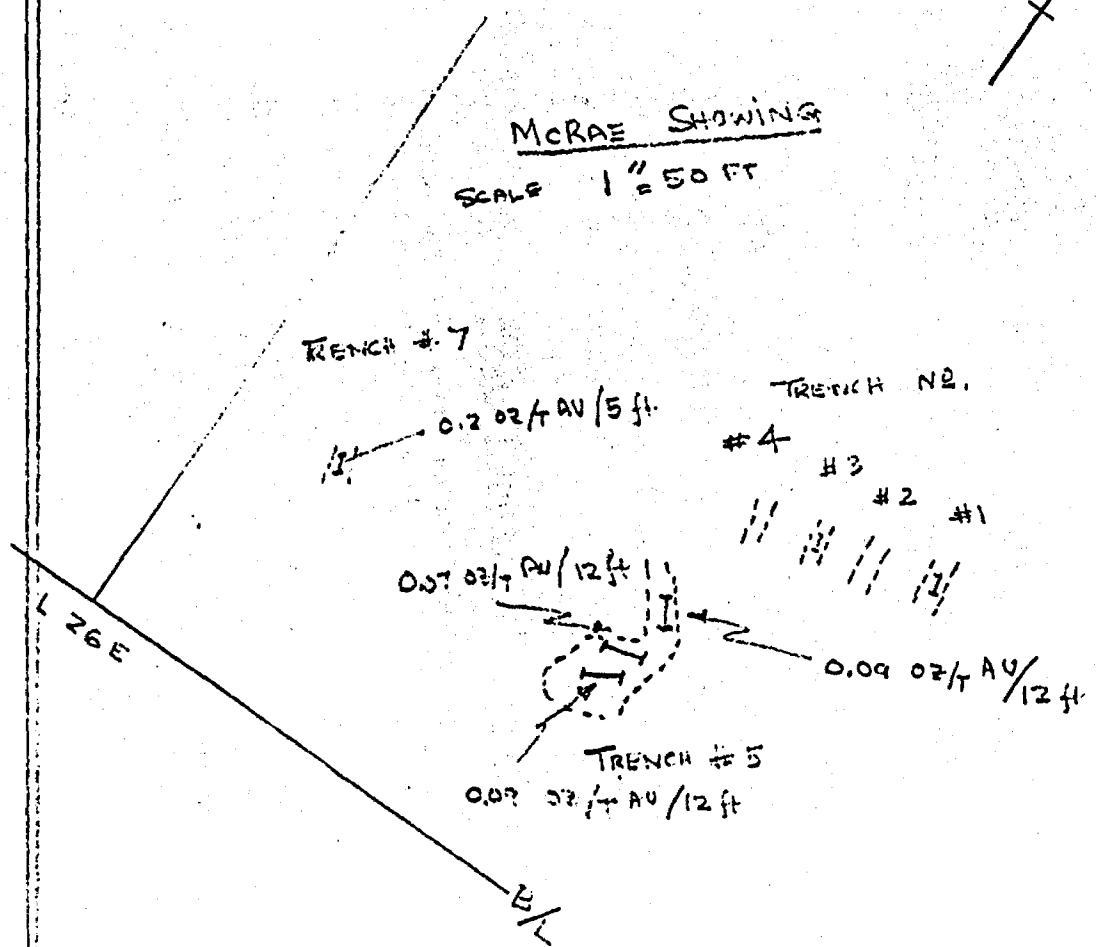 McRAE SHOWING
SCALE 1" = 50 FT
TRENCH # 7
0.2 OZ/T AU/5 ft.
TRENCH NO.
#4
#3
#2
#1
0.07 OZ/T AU/12 ft
0.09 OZ/T AU/12 ft
L 26 E
TRENCH # 5
OZ/T AU/12 ft
B/L